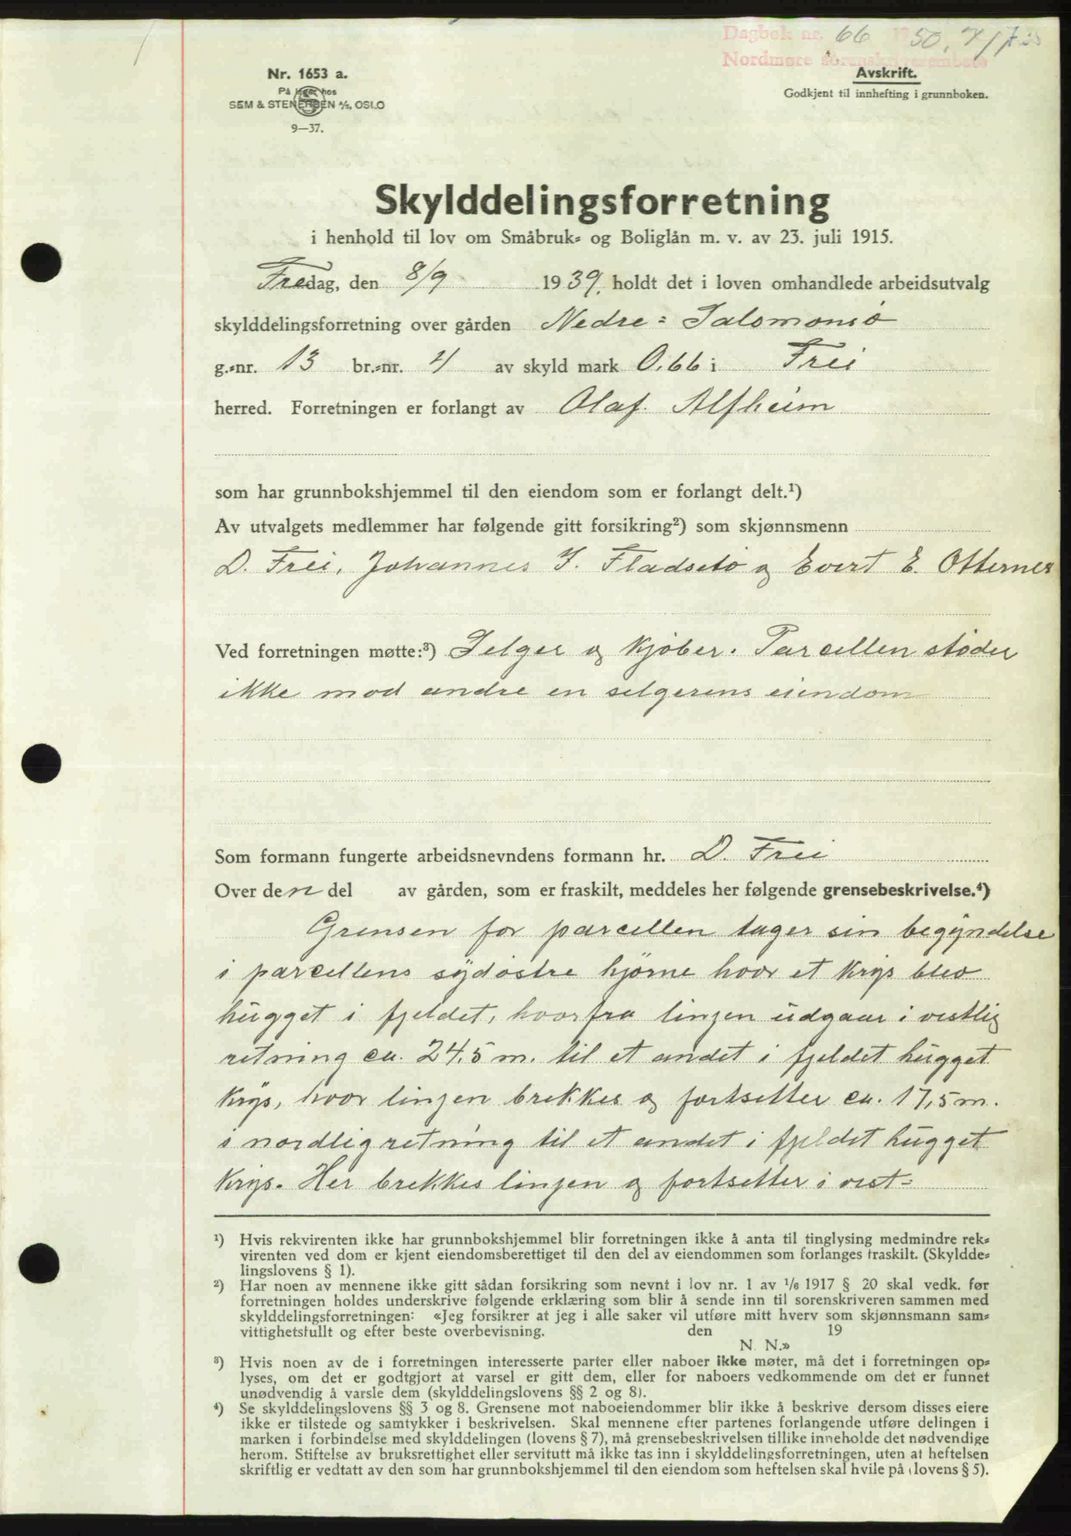 Dagbok nr. 66 1950, 7/1
Nordmøre sorenskriverembete
Nr. 1653 a.
På lager hos
SEM & STENERSEN A/S, OSLO
9—37.
Avskrift.
Godkjent til innhefting i grunnboken.
Skylddelingsforretning
i henhold til lov om Småbruk- og Boliglån m. v. av 23. juli 1915.
Fredag, den 8/9 1939. holdt det i loven omhandlede arbeidsutvalg
skylddelingsforretning over gården Nedre-Salomonsø
g.-nr. 13 br.-nr. 4 av skyld mark 0.66 i Frei
herred. Forretningen er forlangt av Olaf Alfheim
som har grunnbokshjemmel til den eiendom som er forlangt delt.¹)
Av utvalgets medlemmer har følgende gitt forsikring²) som skjønnsmenn
D. Frei, Johannes J. Fladsetø og Evert E. Otternes
Ved forretningen møtte:³) Selger og kjøber. Parcellen støder
ikke mod andre en selgerens eiendom
Som formann fungerte arbeidsnevndens formann hr. D. Frei
Over den del av gården, som er fraskilt, meddeles her følgende grensebeskrivelse.⁴)
Grensen for parcellen tager sin begyndelse
i parcellens sydøstre hjørne hvor et krys blev
hugget i fjeldet, hvorfra linjen udgaar i vestlig
retning ca. 24,5 m. til et andet i fjeldet hugget
krys, hvor linjen brekkes og fortsetter ca. 17,5 m.
i nordlig retning til et andet i fjeldet hugget
krys. Her brekkes linjen og fortsetter i vest-
¹) Hvis rekvirenten ikke har grunnbokshjemmel blir forretningen ikke å anta til tinglysing medmindre rek-
virenten ved dom er kjent eiendomsberettiget til den del av eiendommen som forlanges fraskilt. (Skyldde-
lingslovens § 1).
²) Har noen av mennene ikke gitt sådan forsikring som nevnt i lov nr. 1 av 1/6 1917 § 20 skal vedk. før
forretningen holdes underskrive følgende erklæring som blir å sende inn til sorenskriveren sammen med
skylddelingsforretningen: «Jeg forsikrer at jeg i alle saker vil utføre mitt hverv som skjønnsmann sam-
vittighetsfullt og efter beste overbevisning. den 19
N. N.»
³) Hvis noen av de i forretningen interesserte parter eller naboer ikke møter, må det i forretningen op-
lyses, om det er godtgjort at varsel er gitt dem, eller for naboers vedkommende om det er funnet
unødvendig å varsle dem (skylddelingslovens §§ 2 og 8).
⁴) Se skylddelingslovens §§ 3 og 8. Grensene mot naboeiendommer blir ikke å beskrive dersom disses eiere
ikke er tilstede og samtykker i beskrivelsen. Skal mennene efter partenes forlangende utføre delingen i
marken i forbindelse med skylddelingen (lovens § 7), må grensebeskrivelsen tillike inneholde det nødvendige
herom. Stiftelse av bruksrettighet eller servitutt må ikke tas inn i skylddelingsforretningen, uten at heftelsen
skriftlig er vedtatt av den som har grunnbokshjemmel til den eiendom som heftelsen skal hvile på (lovens § 5).